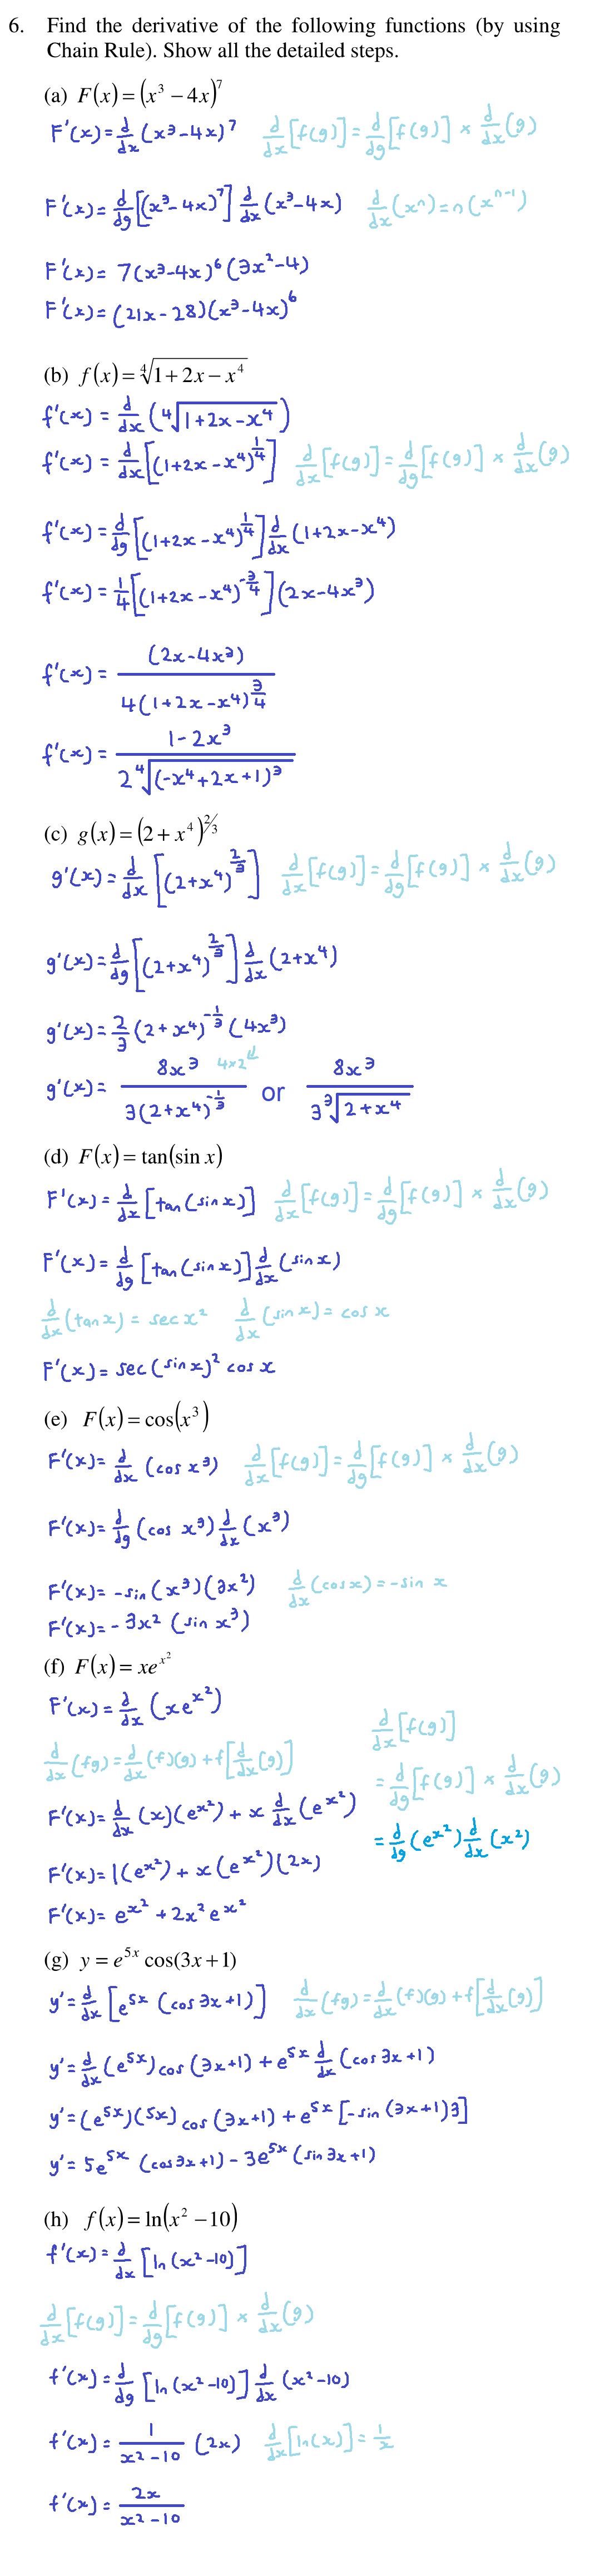 6. Find the derivative of the following functions (by using
Chain Rule). Show all the detailed steps.
(a) F(x) = (x³ − 4x)⁷
F'(x) = d/dx (x³−4x)⁷ d/dx [f(g)] = d/dg [f(g)] × d/dx (g)
F'(x) = d/dg [(x³−4x)⁷] d/dx (x³−4x) d/dx (xⁿ) = n(xⁿ⁻¹)
F'(x) = 7(x³−4x)⁶(3x²−4)
F'(x) = (21x−28)(x³−4x)⁶
(b) f(x) = ⁴√(1+2x−x⁴)
f'(x) = d/dx (⁴√(1+2x−x⁴))
f'(x) = d/dx [(1+2x−x⁴)^(1/4)] d/dx [f(g)] = d/dg [f(g)] × d/dx (g)
f'(x) = d/dg [(1+2x−x⁴)^(1/4)] d/dx (1+2x−x⁴)
f'(x) = 1/4 [(1+2x−x⁴)^(−3/4)] (2x−4x³)
f'(x) = (2x−4x³) / 4(1+2x−x⁴)^(3/4)
f'(x) = 1−2x³ / 2 ⁴√((−x⁴+2x+1)³)
(c) g(x) = (2 + x⁴)^(2/3)
g'(x) = d/dx [(2+x⁴)^(2/3)] d/dx [f(g)] = d/dg [f(g)] × d/dx (g)
g'(x) = d/dg [(2+x⁴)^(2/3)] d/dx (2+x⁴)
g'(x) = 2/3 (2+x⁴)^(−1/3) (4x³)
g'(x) = 8x³ / 3(2+x⁴)^(−1/3) 4×2 or 8x³ / 3 ³√(2+x⁴)
(d) F(x) = tan(sin x)
F'(x) = d/dx [tan(sin x)] d/dx [f(g)] = d/dg [f(g)] × d/dx (g)
F'(x) = d/dg [tan(sin x)] d/dx (sin x)
d/dx (tan x) = sec x² d/dx (sin x) = cos x
F'(x) = sec(sin x)² cos x
(e) F(x) = cos(x³)
F'(x) = d/dx (cos x³) d/dx [f(g)] = d/dg [f(g)] × d/dx (g)
F'(x) = d/dg (cos x³) d/dx (x³)
F'(x) = −sin(x³)(3x²) d/dx (cos x) = −sin x
F'(x) = −3x² (sin x³)
(f) F(x) = xe^(x²)
F'(x) = d/dx (xe^(x²))
d/dx [f(g)]
d/dx (fg) = d/dx (f)(g) + f[d/dx (g)]
= d/dg [f(g)] × d/dx (g)
F'(x) = d/dx (x)(e^(x²)) + x d/dx (e^(x²))
= d/dg (e^(x²)) d/dx (x²)
F'(x) = 1(e^(x²)) + x(e^(x²))(2x)
F'(x) = e^(x²) + 2x²e^(x²)
(g) y = e^(5x) cos(3x+1)
y' = d/dx [e^(5x) (cos 3x+1)] d/dx (fg) = d/dx (f)(g) + f[d/dx (g)]
y' = d/dx (e^(5x)) cos (3x+1) + e^(5x) d/dx (cos 3x+1)
y' = (e^(5x))(5x) cos (3x+1) + e^(5x) [−sin (3x+1)3]
y' = 5e^(5x) (cos 3x+1) − 3e^(5x) (sin 3x+1)
(h) f(x) = ln(x² − 10)
f'(x) = d/dx [ln (x²−10)]
d/dx [f(g)] = d/dg [f(g)] × d/dx (g)
f'(x) = d/dg [ln (x²−10)] d/dx (x²−10)
f'(x) = 1/(x²−10) (2x) d/dx [ln(x)] = 1/x
f'(x) = 2x/(x²−10)